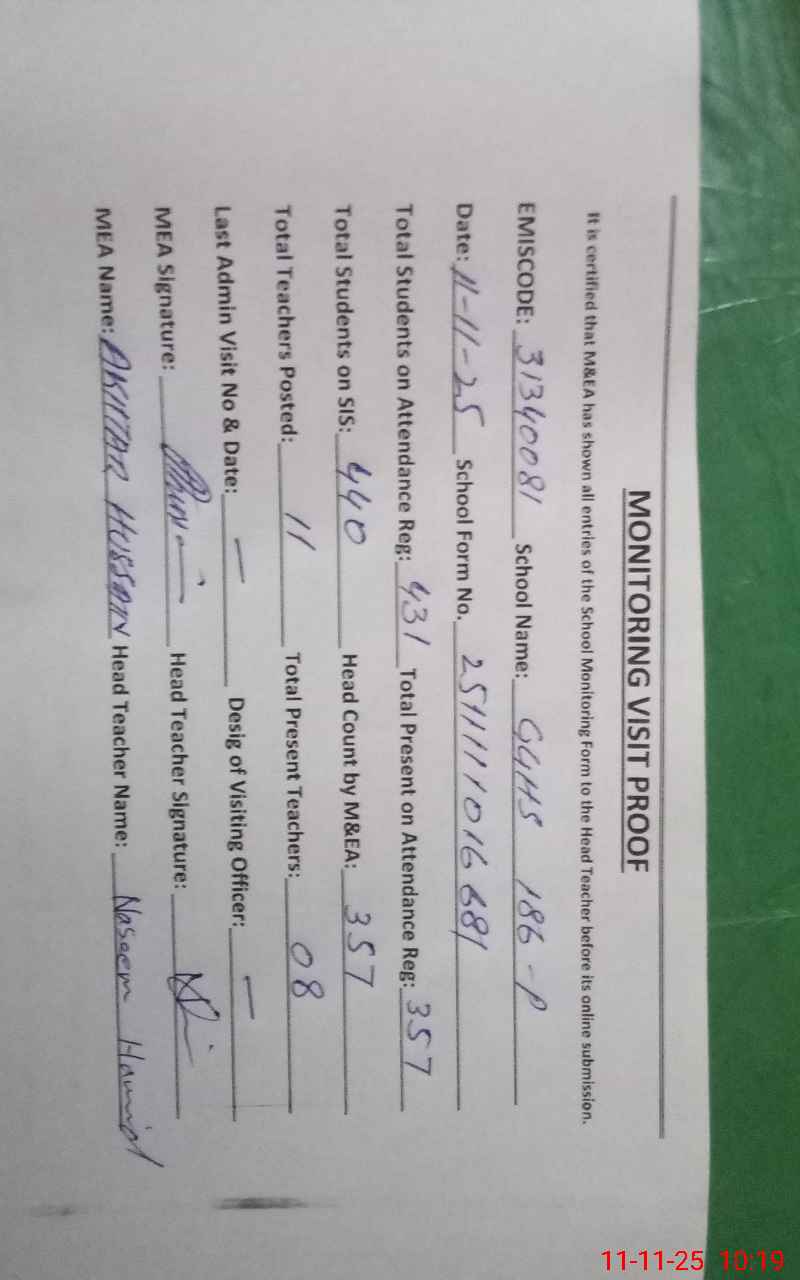 MONITORING VISIT PROOF
It is certified that M&EA has shown all entries of the School Monitoring Form to the Head Teacher before its online submission.
EMISCODE: 31340081 School Name: GGHS 186-P
Date: 11-11-25 School Form No. 251111016681
Total Students on Attendance Reg: 431 Total Present on Attendance Reg: 357
Total Students on SIS: 440 Head Count by M&EA: 357
Total Teachers Posted: 11 Total Present Teachers: 08
Last Admin Visit No & Date: — Desig of Visiting Officer: —
MEA Signature: Head Teacher Signature:
MEA Name: AKHTAR HUSSAIN Head Teacher Name: Naseem Hamid
11-11-25 10:19